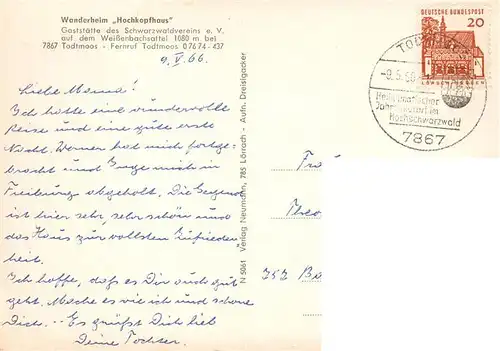 Wanderheim „Hochkopfhaus"
Gaststätte des Schwarzwaldvereins e. V.
auf dem Weißenbachsattel 1080 m. bei
7867 Todtmoos - Fernruf Todtmoos 0 76 74 - 437
9. V. 66.
Liebe Mama!
Ich hatte eine wundervolle
Reise und eine gute erste
Nacht. Werner hat mich fortge-
bracht und Inge mich in
Freiburg abgeholt. Die Gegend
ist hier sehr, sehr schön und
das Haus zur vollsten Zufrieden-
heit.
Ich hoffe, daß es Dir auch gut
geht. Mache es wie ich und schone
Dich. — Es grüßt Dich lieb
Deine Tochter.
N 5061 Verlag Neumann, 785 Lörrach - Aufn. Dreisigacker
DEUTSCHE BUNDESPOST
20
LORSCH/HESSEN
-9.5.66
Heilklimatischer
Jahreskurort im
Hochschwarzwald
7867
Fra
Theo
352 Ba